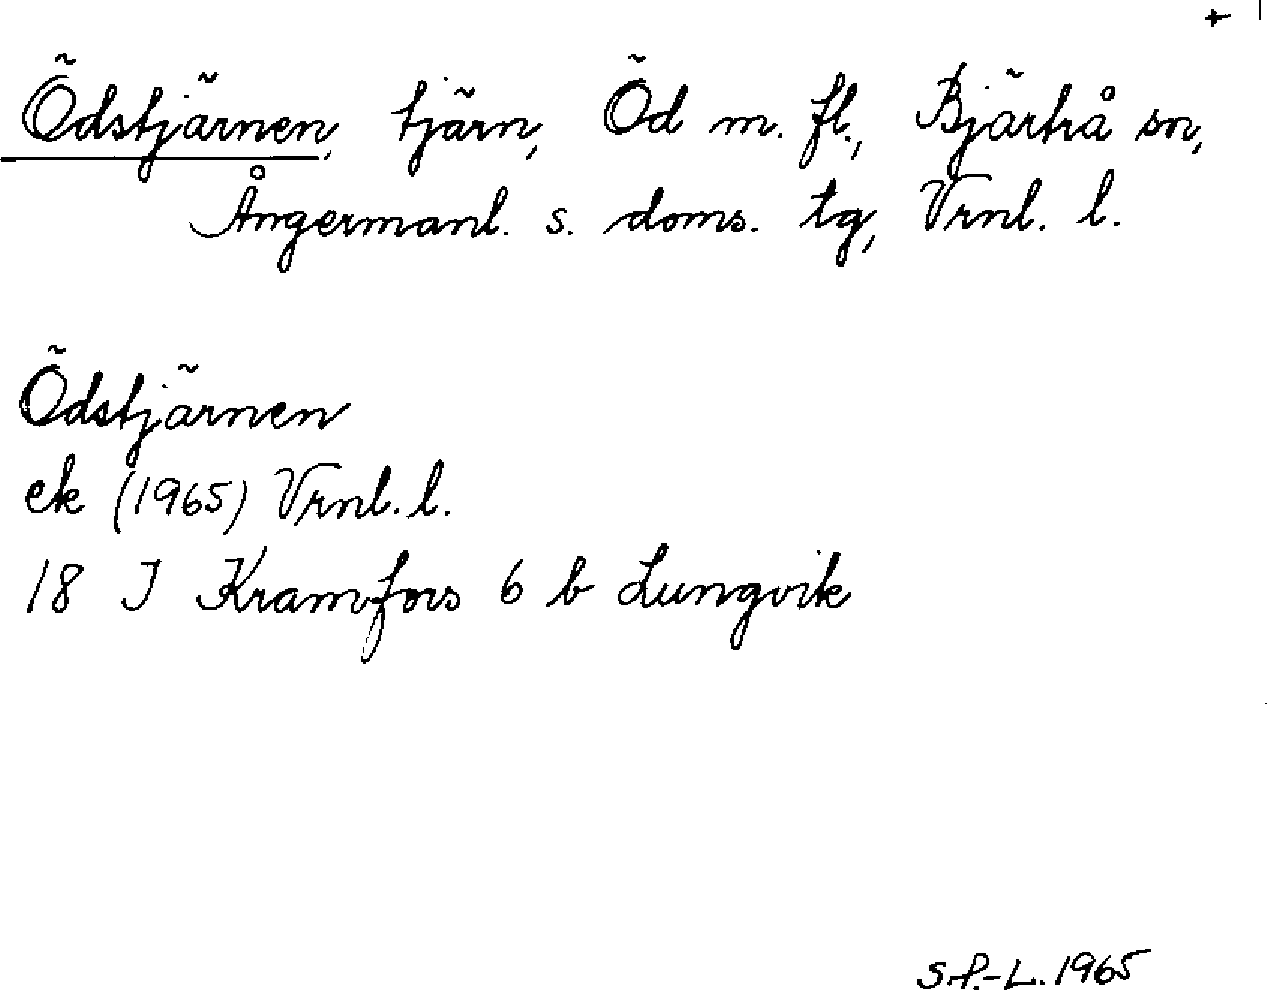 +
Ödstjärnen, tjärn, Öd m. fl., Bjärtrå sn,
Ångermanl. s. doms. tg, Vrnl. l.
Ödstjärnen
ek (1965) Vrnl. l.
18 J Kramfors 6 b Lungvik
S.P.-L. 1965